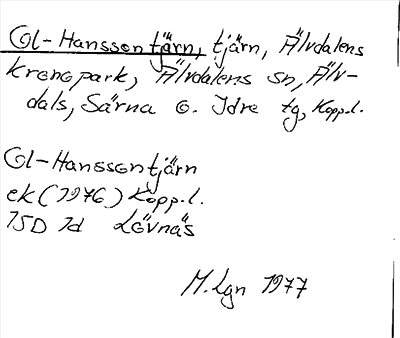 Ol-Hanssontjärn, tjärn, Älvdalens
kronopark, Älvdalens sn, Älv-
dals, Särna o. Idre tg, Kopp.l.
Ol-Hanssontjärn
ek (1976) Kopp.l.
15D 1d Lövnäs
M. Lgn 1977